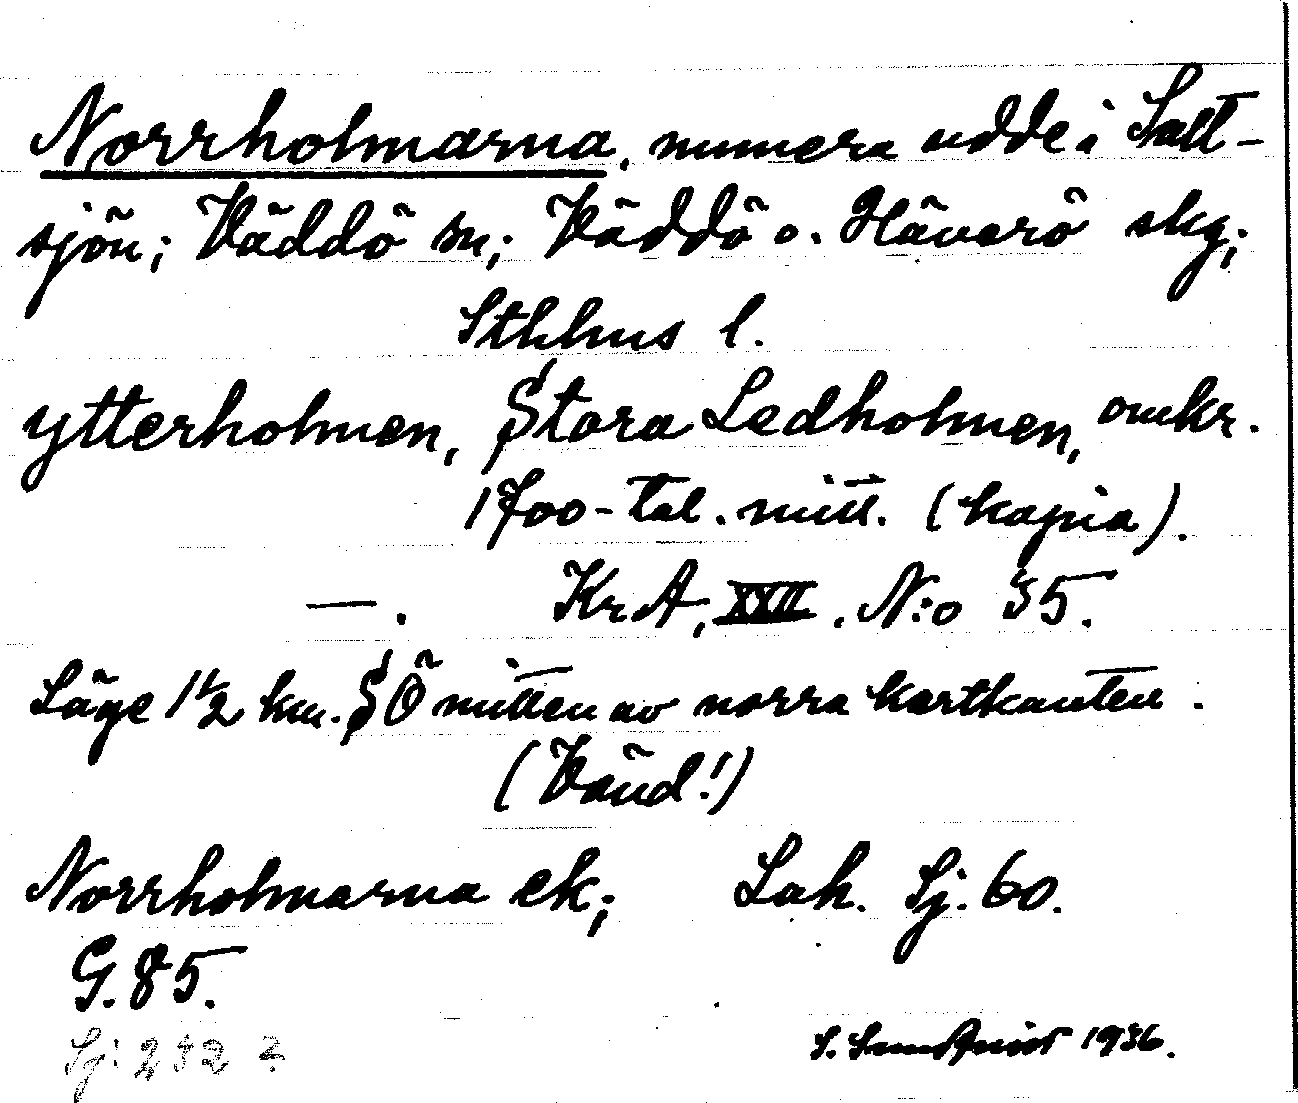 Norrholmarna, numera udde i Salt-
sjön; Väddö sn; Väddö o. Häverö skg;
Sthlms l.
Ytterholmen, Stora Ledholmen, omkr.
1700-tal. mitt. (kopia).
—. KrA, XXII. N:o 35.
Läge 1 1/2 km. SÖ mitten av norra kartkanten.
(Vänd!)
Norrholmarna ek; Lah. Sj. 60.
G. 85.
Sj: 232 2.
S. Sundqvist 1936.